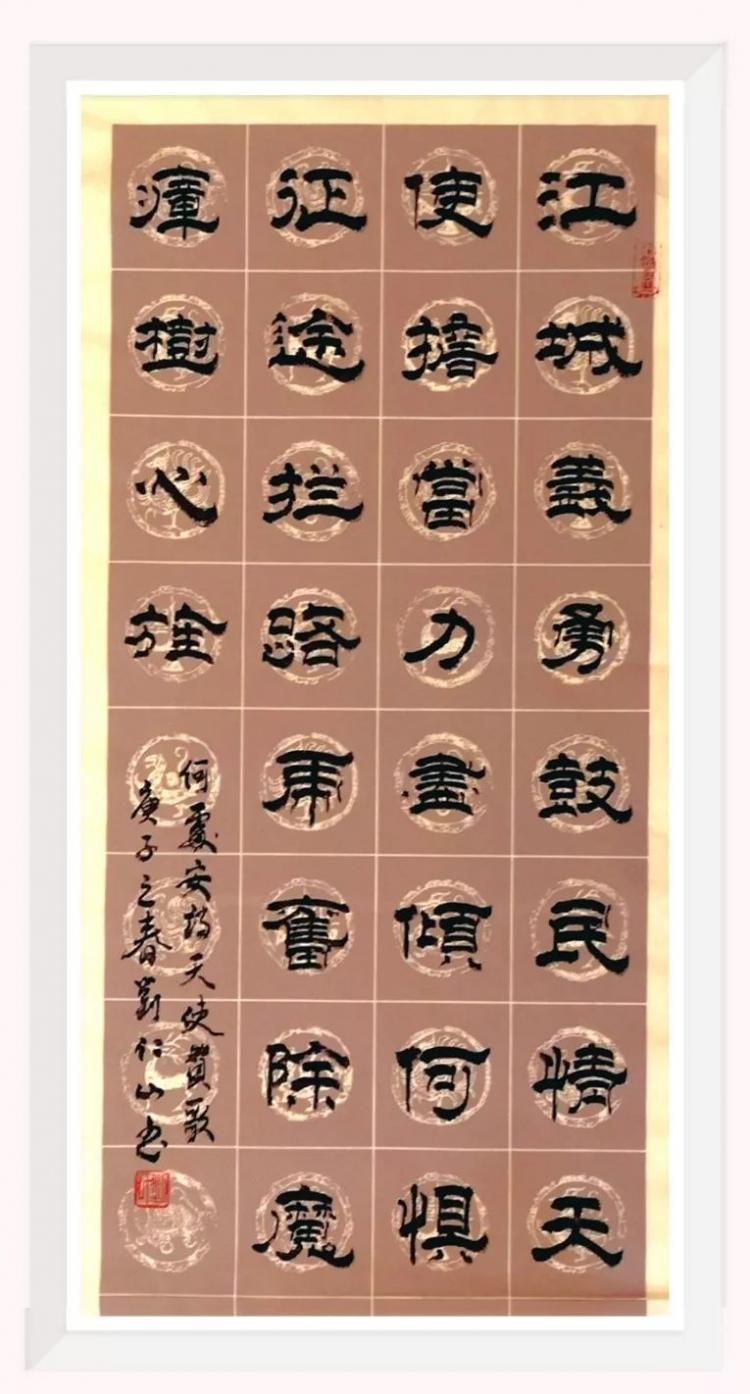 江城義勇鼓民情天
使擔當力盡傾何懼
征途拦路虎奮除魔
瘴樹心旌
何處安詩天使贊歌
庚子之春劉仁山书